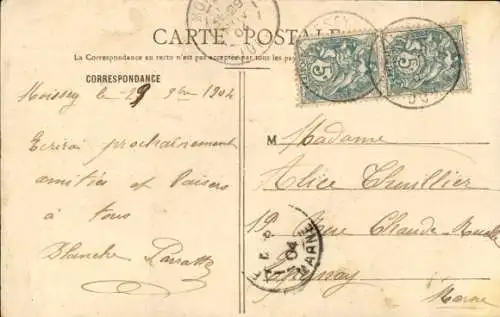 CARTE POSTALE
La Correspondance au recto n'est pas acceptée par tous les pays
CORRESPONDANCE
Moissey le 29 9bre 1904
Ecrirai prochainement
amitiés et baisers
à tous
Blanche
M Madame
Alice Thuillier
19 Rue Chaude-Ruelle
Epernay
Marne
5
5
04
MARNE